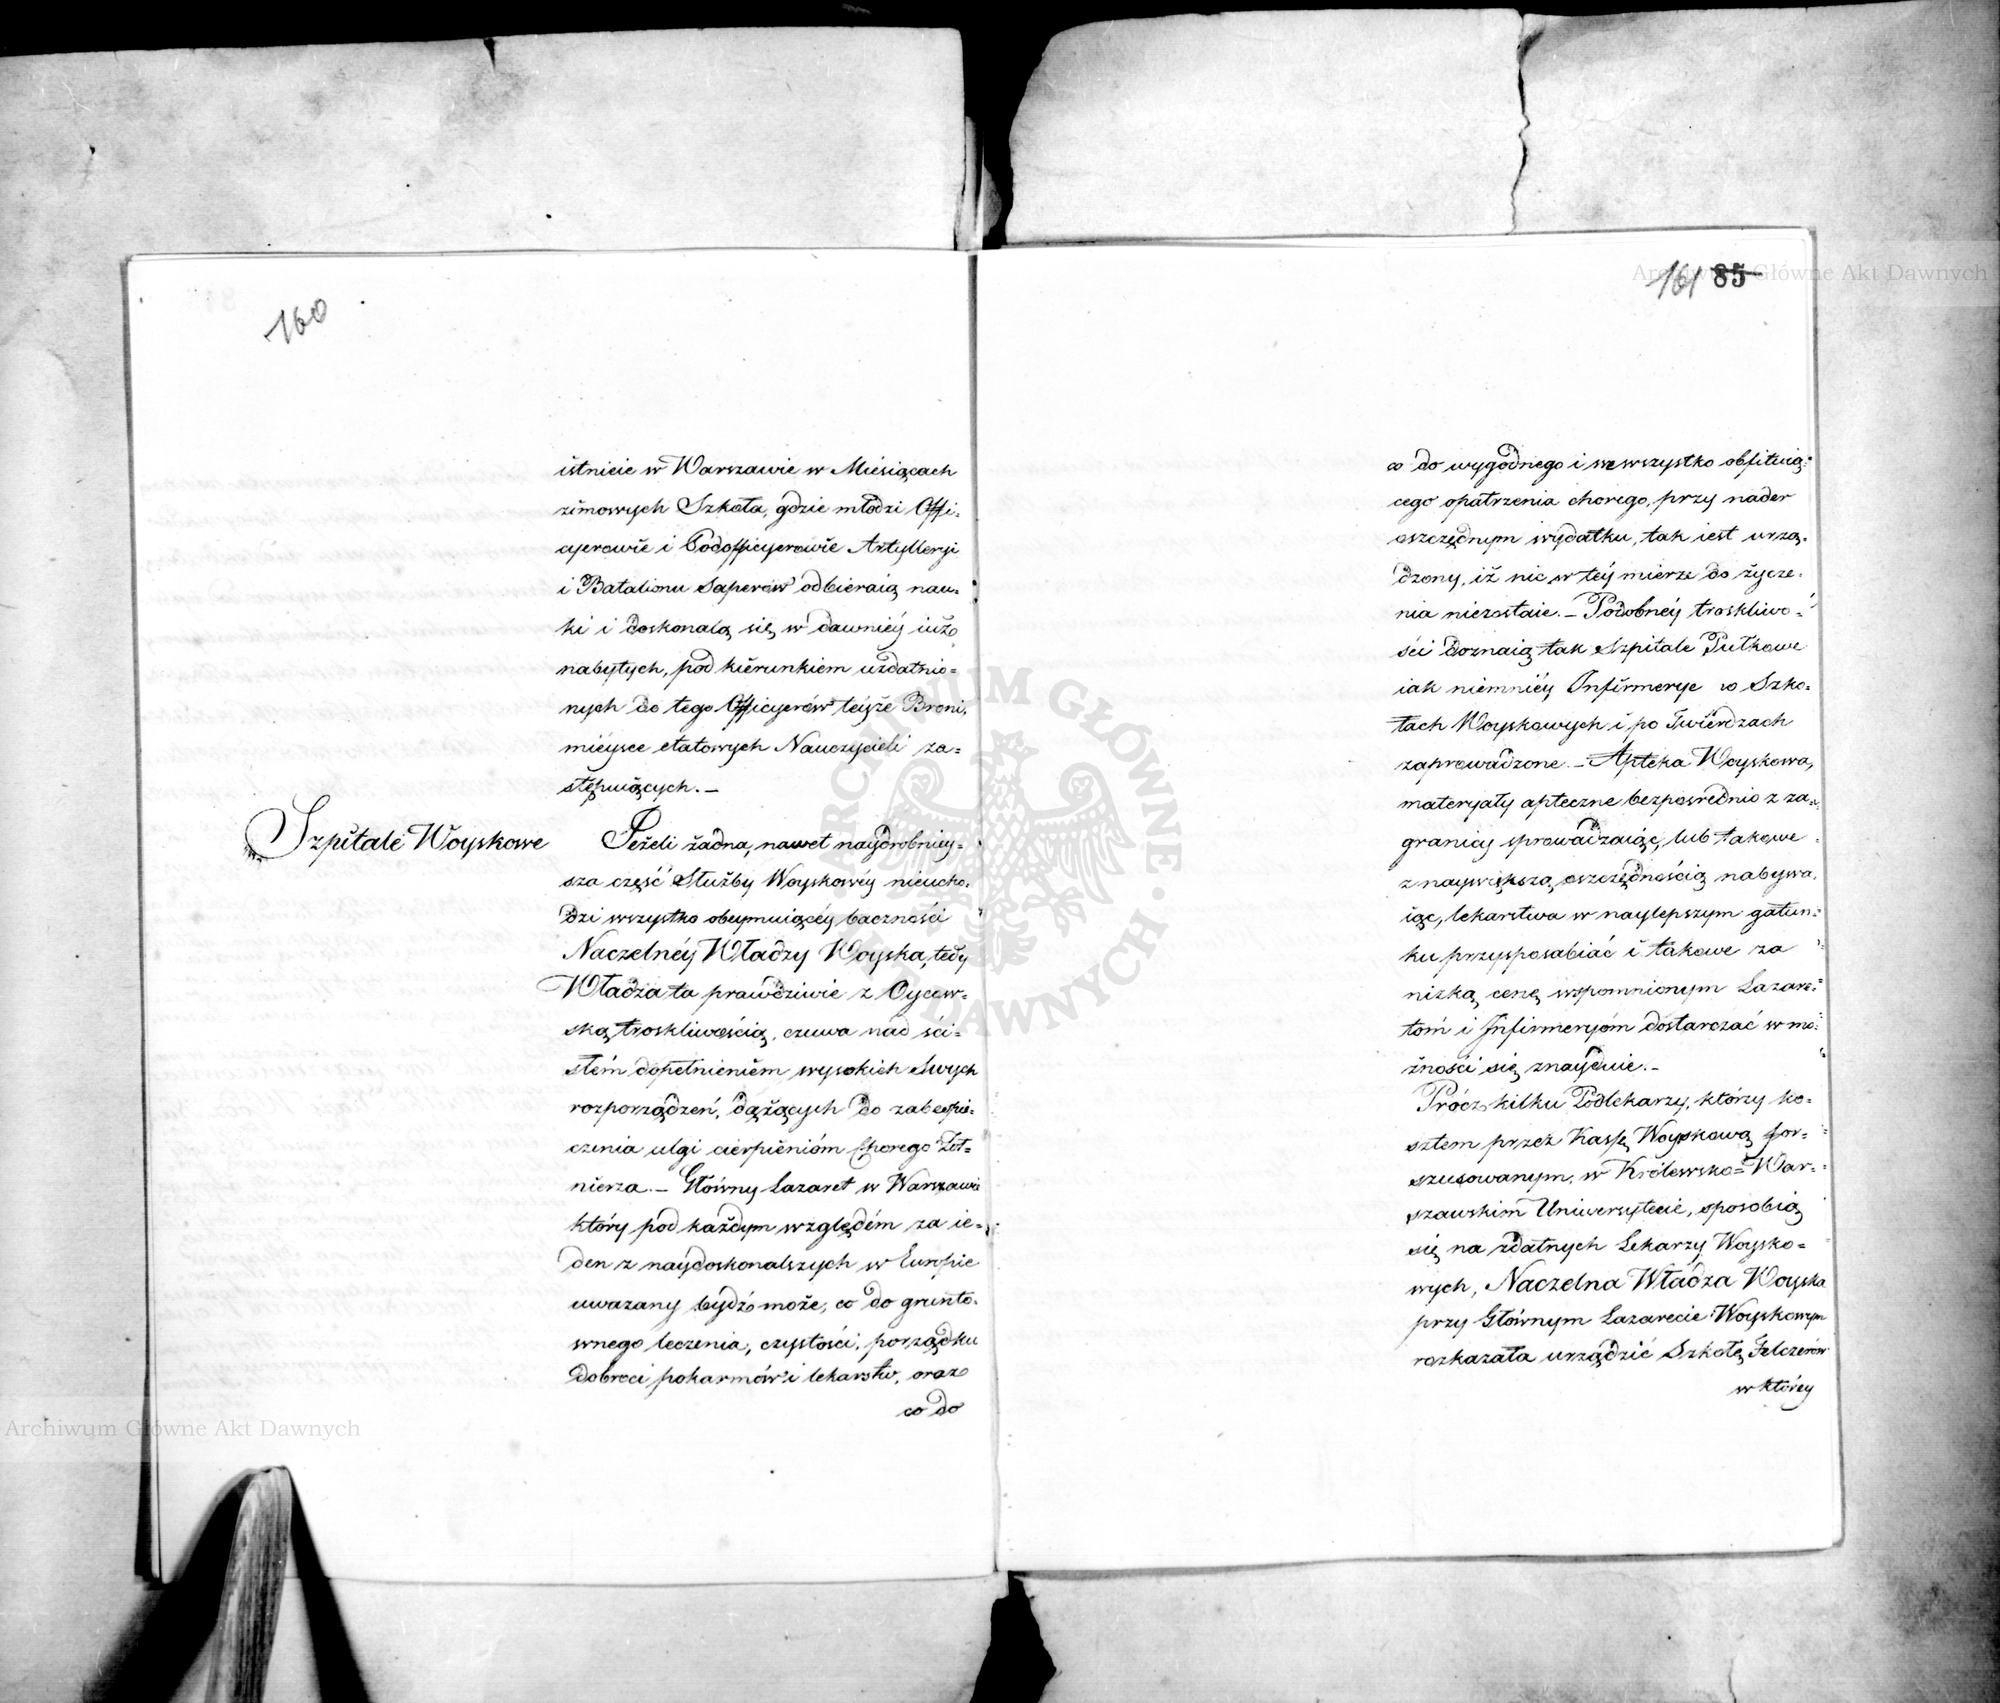 160
istnieie w Warszawie w Miesiącach
zimowych Szkoła, gdzie młodzi Offi-
cyerowie i Podofficyerowie Artylleryi
i Batalionu Saperów odbieraią nau-
ki i doskonalą się w dawniéy iuż
nabytych, pod kierunkiem uzdatnio=
nych do tego Officyerów teyże Broni,
mieysce etatowych Nauczycieli za=
stępuiących. —
Szpitale Woyskowe
Jeżeli żadna, nawet naydrobniey-
sza część Służby Woyskowéy nieucho-
dzi wszystko obeymuiącéy baczności
Naczelnéy Władzy Woyska, tedy
Władza ta prawdziwie z Oycow-
ską troskliwością, czuwa nad ści-
słém dopełnieniem wysokich swych
rozporządzeń, dążących do zabespie-
czenia ulgi cierpieniom Chorego Żoł-
nierza. — Główny Lazaret w Warszawie
który pod każdym względem za ie-
den z naydoskonalszych w Europie
uwazany bydź może, co do grunto-
wnego leczenia, czystości, porządku
dobroci pokarmów i lekarstw, oraz
co do
161 85
co do wygodnego i we wszystko obfituią-
cego opatrzenia chorego, przy nader
oszczędnym wydatku, tak iest urzą-
dzony, iż nic w téy mierze do życze-
nia niezostaie. — Podobnéy troskliwo-
ści doznaią tak Szpitale Pułkowe
iak niemniéy Infirmerye w Szko-
łach Woyskowych i po Twierdzach
zaprowadzone. — Apteka Woyskowa,
materyały apteczne bezpośrednio z za-
granicy sprowadzaiąc, lub takowe
z naywiększą oszczędnością nabywa-
iąc, lekarstwa w naylepszym gatun-
ku przysposabiać i takowe za
nizką cenę wspomnionym Lazare-
tom i Infirmeryom dostarczać w mo-
żności się znayduie. —
Prócz kilku Podlekarzy, którzy ko-
sztem przez Kassę Woyskową for-
szusowanym, w Królewsko=War-
szawskim Uniwersytecie, sposobią
się na zdatnych Lekarzy Woysko=
wych, Naczelna Władza Woyska
przy Głównym Lazarecie Woyskowym
rozkazała urządzić Szkołę Felczerów
w któréy
Archiwum Główne Akt Dawnych
Archiwum Główne Akt Dawnych
ARCHIWUM GŁÓWNE AKT DAWNYCH